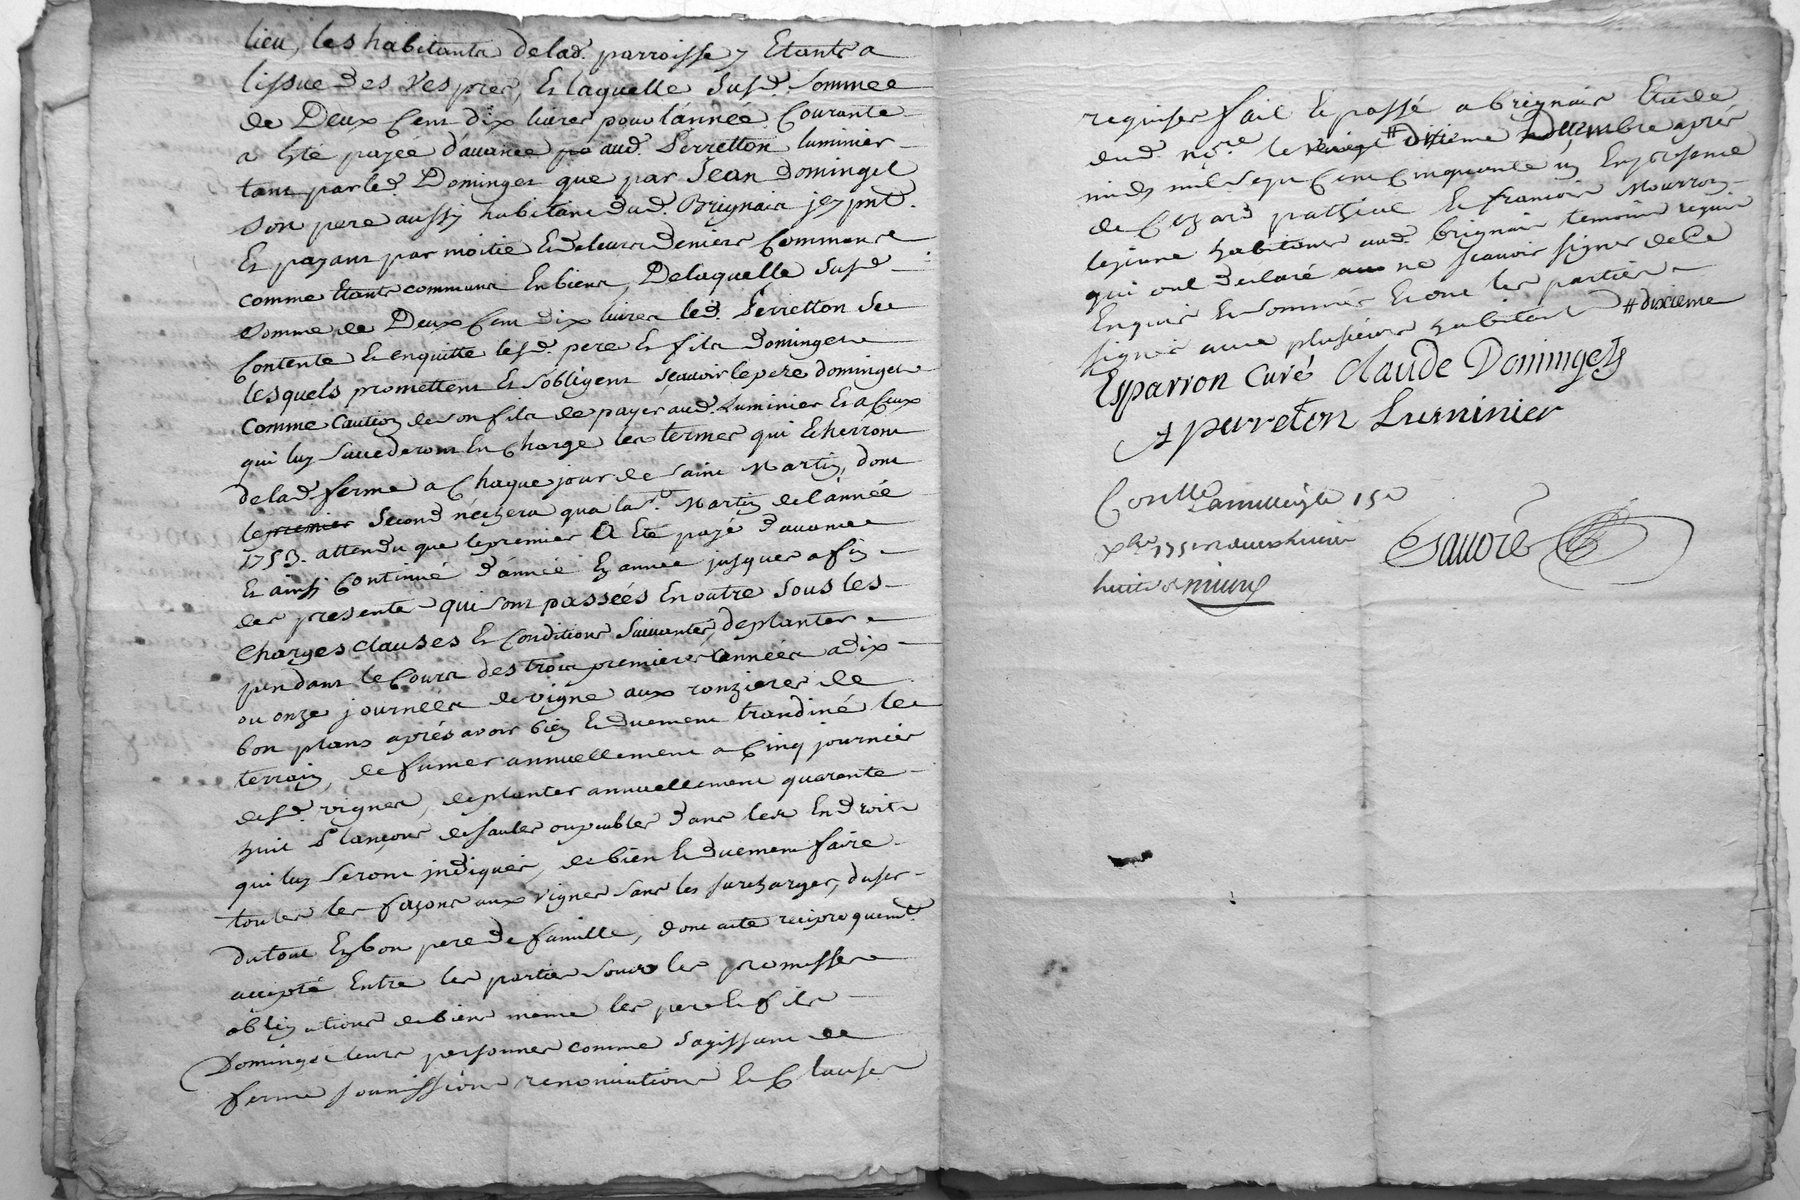 lieu, les habitants de lad. parroisse y Etants a
lissue des Vespres, Et laquelle susd. somme
de Deux Cent dix livres pour l'année Courante
a Esté payée d'avance aud. Perretton luminier
tant par led. Dominget que par Jean Dominget
son pere aussy habitant dud. Brignais jcy pnt.
Et payant par moitié Et de leurs deniers Communs
comme Etants communs En biens, De laquelle susd.
somme de Deux Cent dix livres led. Perretton se
Contente Et enquitte lesd. pere Et fils dominget
lesquels promettent Et s'obligent scavoir le pere dominget
comme caution de son fils de payer aud. Luminier Et a Ceux
qui luy succederont En Charge les termes qui Echerront
de lad. ferme a Chaque jour de saint Martin, dont
le premier second n'echera qua la st. Martin de l'année
1753. attendu que le premier A Eté payé d'avance
Et ainsi Continué d'année En année jusques a fin
des presentes qui sont passées En outre sous les
Charges clauses Et Conditions suivantes, de planter
pendant le Cours des trois premieres années a dix
ou onze journées de vigne aux ronzieres de
bon plans aprés avoir bien Et duement trandiné le
terrain, de fumer annuellement a Cinq journées
desd. vignes, de planter annuellement quarante
huit Plançons de saules ou peubles dans les Endroits
qui luy seront jndiqués, de bien Et duement faire
toutes les façons aux vignes sans les surcharger, d'user
du tout En bon pere de famille, dont acte reciproquemt.
accepté Entre les parties sous les promesses
obligations de biens même les pere Et fils
Dominget leurs personnes comme s'agissant de
ferme soumissions renonciations Et Clauses
requises fait Et passé a brignais Etude
dud. nore. le vingt # dixieme Decembre aprés
midy mil sept Cent Cinquante un En presence
de Cezard Et francois Mourron
lejeune habitants aud. brignais temoins requis
qui ont declaré ne scavoir signer de Ce
Enquis Et sommés Et ont les parties
signés avec plusieurs habitants # dixieme
Esparron curé Claude Dominget
A perreton Luminier
Conlle a millery le 15e
xbre 1751 deux livres
huit s
Savoré